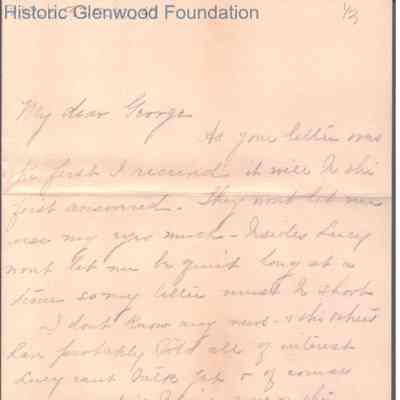 Historic Glenwood Foundation
1/2
My dear George
As your letter was
the first I received it will be the
first answered. They wont let me
use my eyes much - besides Lucy
wont let me be quiet long at a
time so my letter must be short
I dont know any news - & the others
have probably told all of interest
Lucy cant talk yet & of course